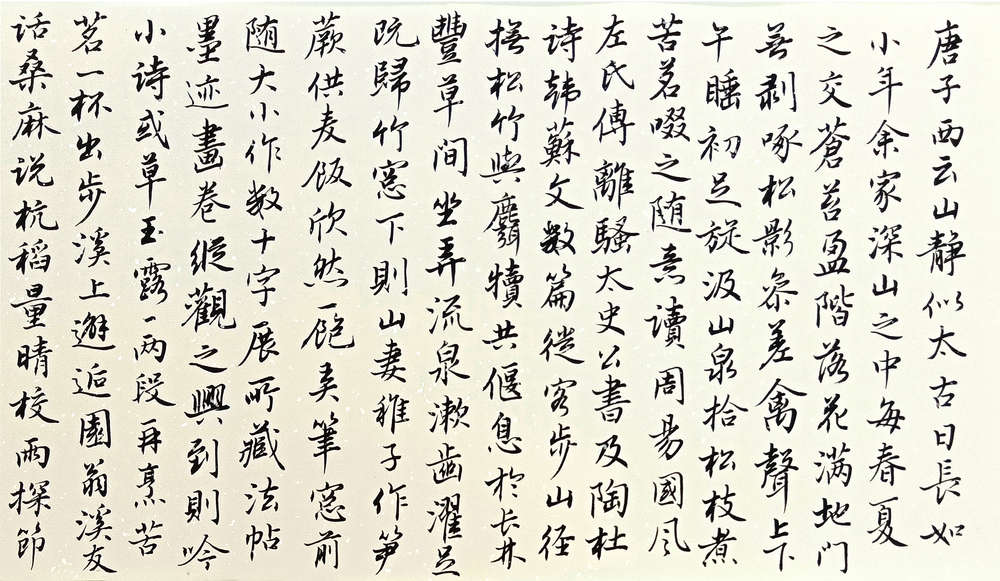 唐子西云山静似太古日長如
小年余家深山之中每春夏
之交蒼苔盈階落花满地门
無剥啄松影参差禽聲上下
午睡初足旋汲山泉拾松枝煮
苦茗啜之随意讀周易國风
左氏傳離騷太史公書及陶杜
诗韩蘇文数篇從容步山径
撫松竹與麛犢共偃息於长林
豐草间坐弄流泉漱齒濯足
既歸竹窓下則山妻稚子作笋
蕨供麦饭欣然一飽弄筆窓前
随大小作数十字展所藏法帖
墨迹畫卷縱觀之興到則吟
小诗或草玉露一两段再烹苦
茗一杯出步溪上邂逅園翁溪友
话桑麻说杭稻量晴校雨探節